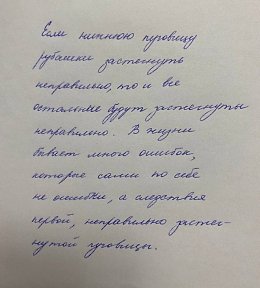 Если нижнюю пуговицу
рубашки застегнуть
неправильно, то и все
остальные будут застегнуты
неправильно. В жизни
бывает много ошибок,
которые сами по себе
не ошибки, а следствия
первой, неправильно застег-
нутой пуговицы.